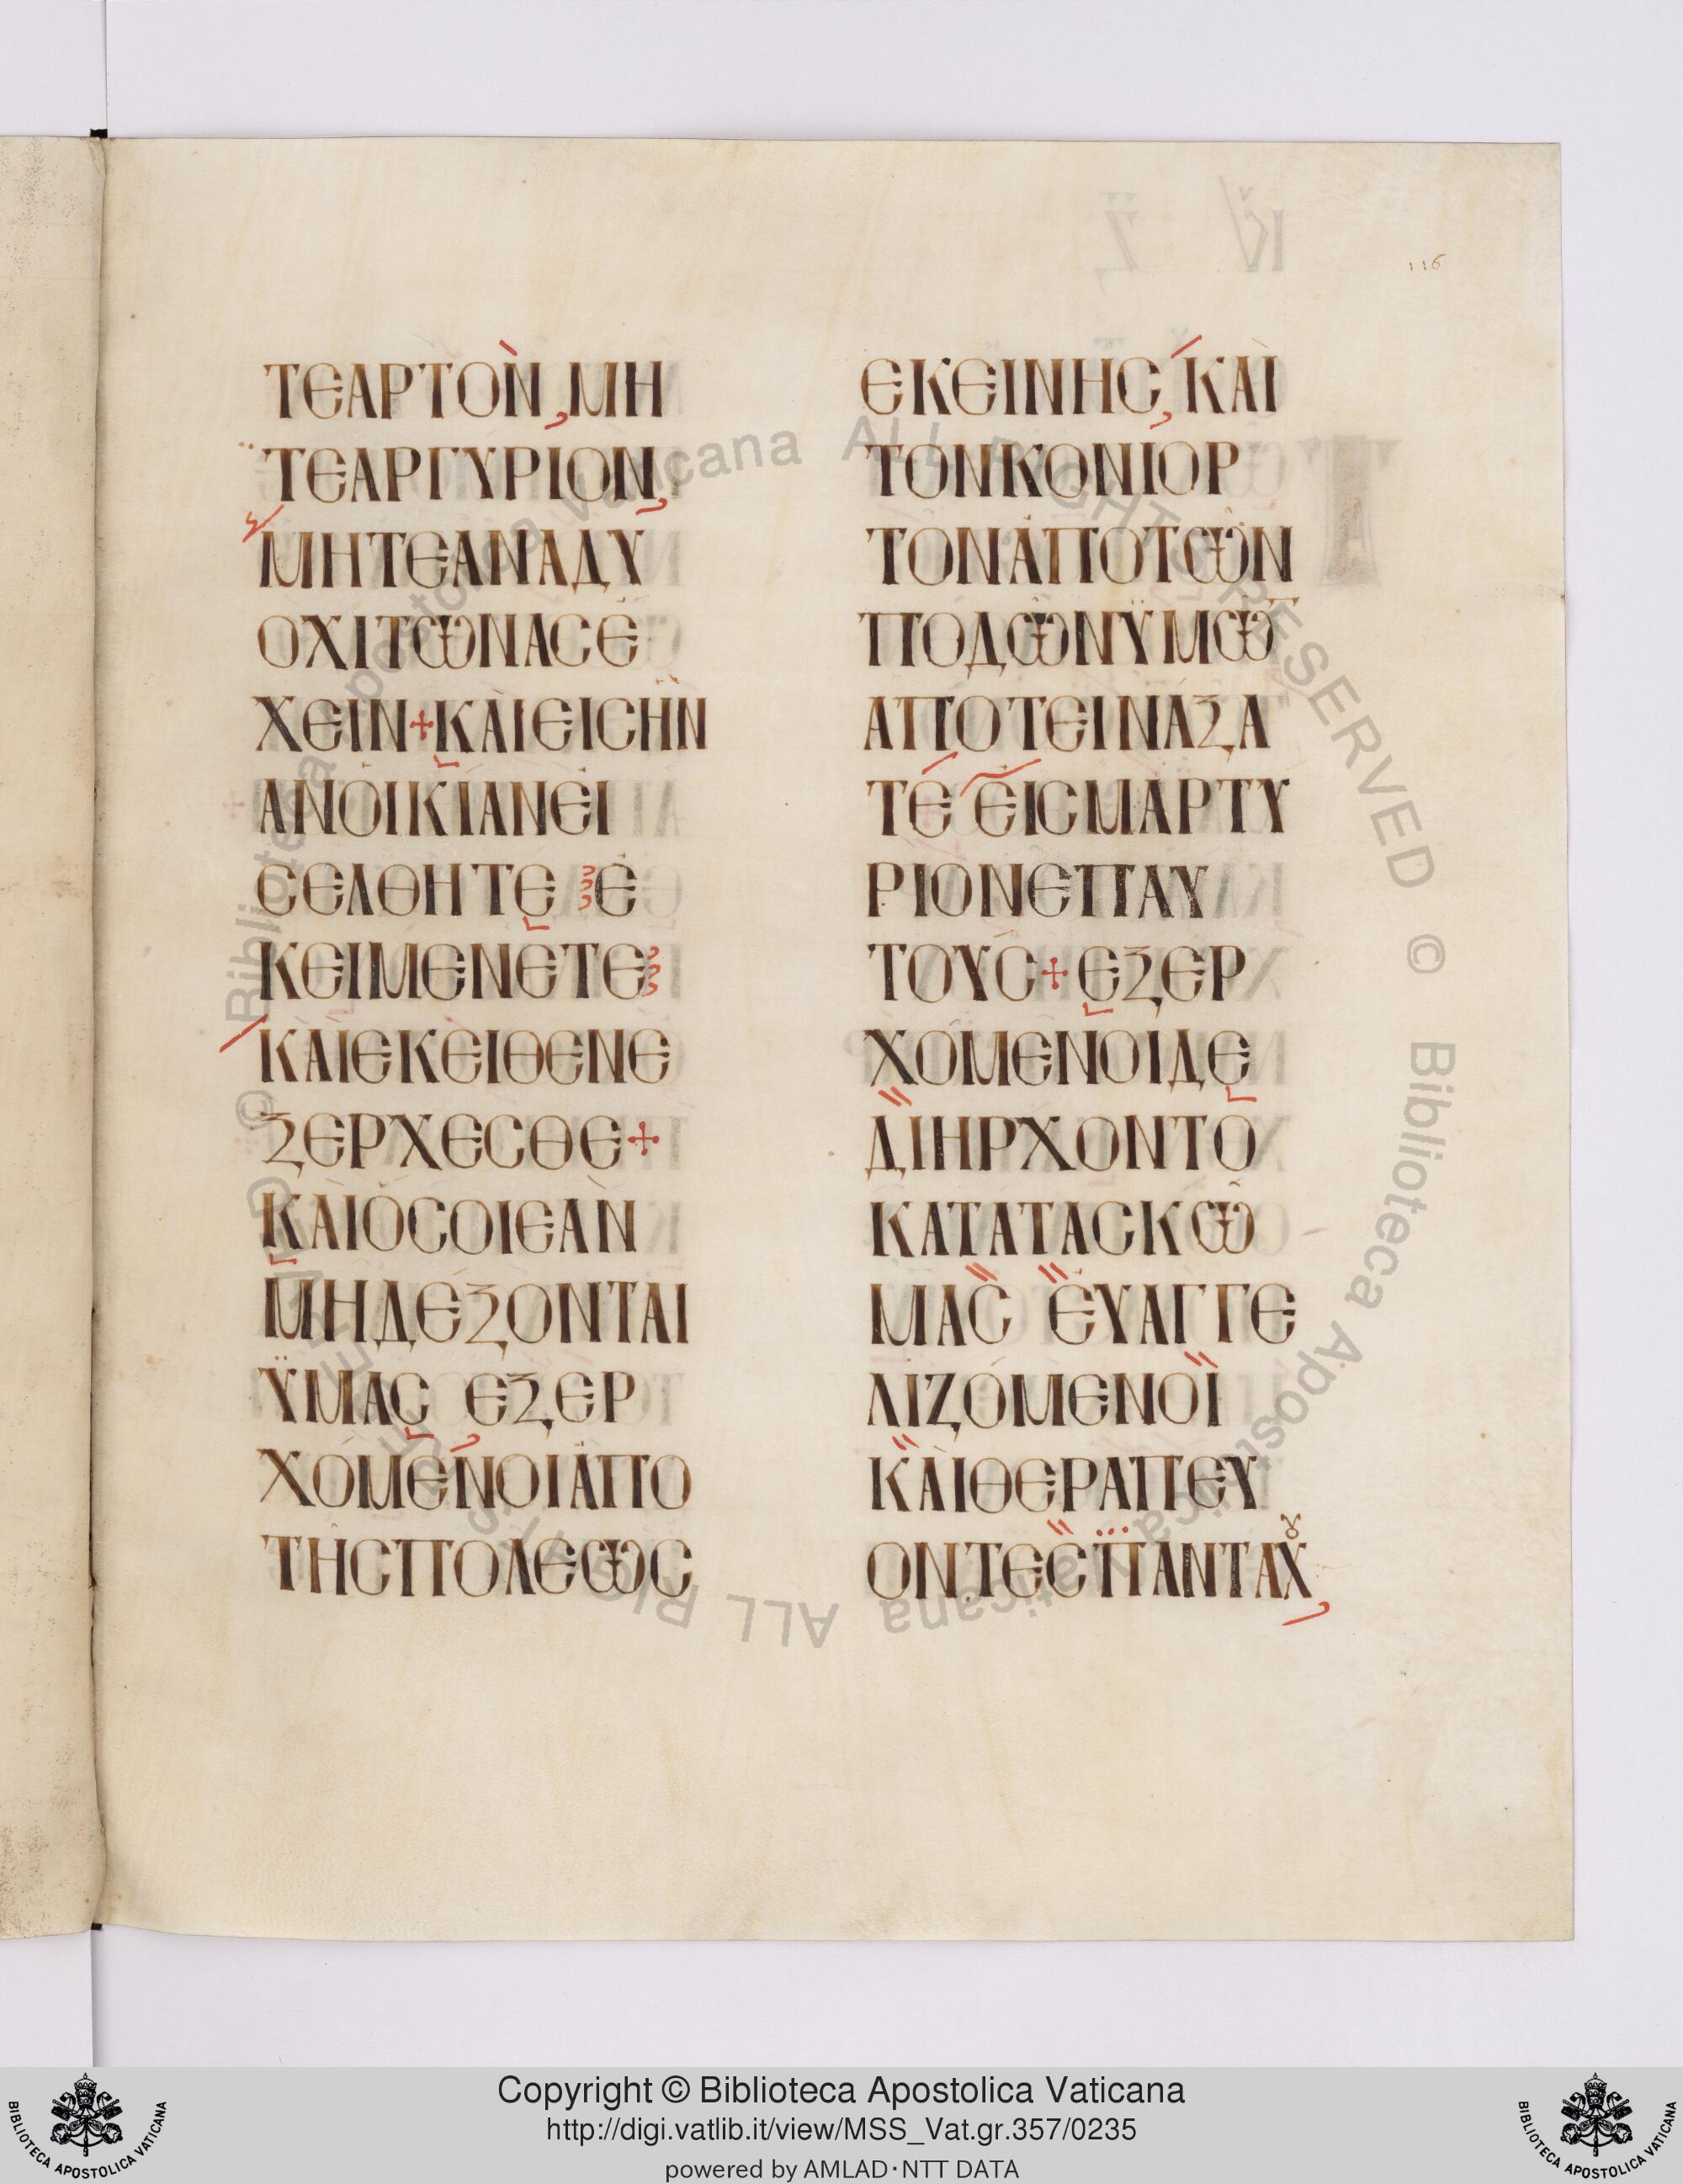 116
ΤΕΑΡΤΟΝ, ΜΗ
ΤΕΑΡΓΥΡΙΟΝ,
ΜΗΤΕΑΝΑΔΥ
ΟΧΙΤΩΝΑСΕ
ΧΕΙΝ+ΚΑΙΕΙСΗΝ
ΑΝΟΙΚΙΑΝΕΙ
СΕΛΘΗΤΕ Ε
ΚΕΙΜΕΝΕΤΕ
ΚΑΙΕΚΕΙΘΕΝΕ
ΞΕΡΧΕСΘΕ+
ΚΑΙΟСΟΙΕΑΝ
ΜΗΔΕΞΟΝΤΑΙ
ΫΜΑС ΕΞΕΡ
ΧΟΜΕΝΟΙΑΠΟ
ΤΗСΠΟΛΕΩС
ΕΚΕΙΝΗС, ΚΑΙ
ΤΟΝΚΟΝΙΟΡ
ΤΟΝΑΠΟΤΩΝ
ΠΟΔΩΝΫΜΩ̅
ΑΠΟΤΕΙΝΑΞΑ
ΤΕ ΕΙСΜΑΡΤΥ
ΡΙΟΝΕΠΑΥ
ΤΟΥС+ΕΞΕΡ
ΧΟΜΕΝΟΙΔΕ
ΔΙΗΡΧΟΝΤΟ
ΚΑΤΑΤΑСΚΩ
ΜΑС ΕΥΑΓΓΕ
ΛΙΖΟΜΕΝΟΙ
ΚΑΙΘΕΡΑΠΕΥ
ΟΝΤΕСΠΑΝΤΑΧȣ
© Biblioteca Apostolica Vaticana ALL RIGHTS RESERVED © Biblioteca Apostolica Vaticana ALL RIGHTS RESERVED
BIBLIOTECA APOSTOLICA VATICANA
Copyright © Biblioteca Apostolica Vaticana
http://digi.vatlib.it/view/MSS_Vat.gr.357/0235
powered by AMLAD·NTT DATA
BIBLIOTECA APOSTOLICA VATICANA